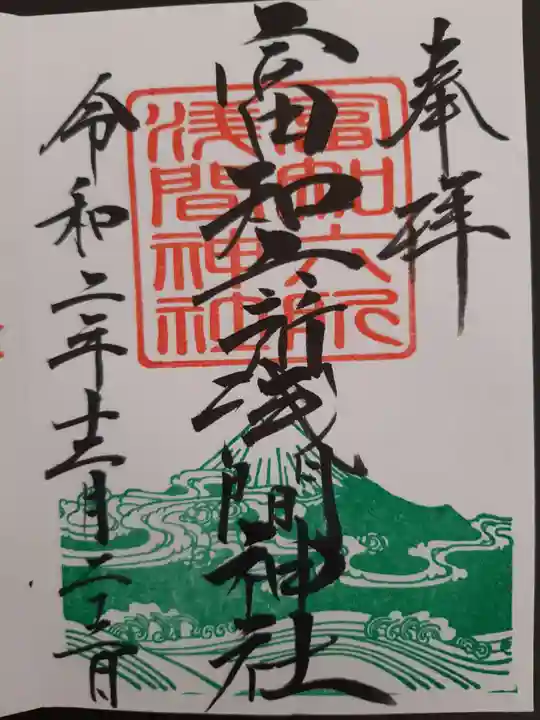 奉拝
富知六所浅間神社
富知六所
浅間神社
令和二年十二月二十六日